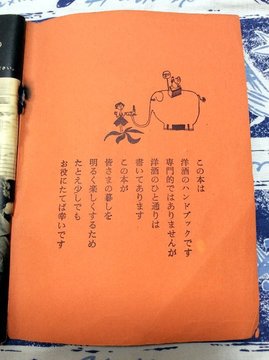 この本は
洋酒のハンドブックです
専門的ではありませんが
洋酒のひと通りは
書いてあります
この本が
皆さまの暮しを
明るく楽しくするため
たとえ少しでも
お役にたてば幸いです